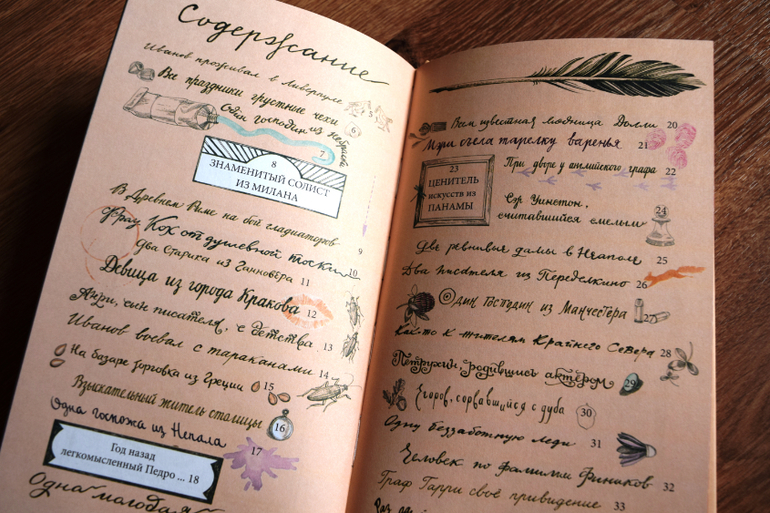 Содержание
Иванов проживал в Ливерпуле 5
Все праздники грустные чехи 6
Один господин из Небраски 7
8
ЗНАМЕНИТЫЙ СОЛИСТ
ИЗ МИЛАНА
В Древнем Риме на бой гладиаторов 9
Фрау Кох от душевной тоски 10
Два старика из Ганновера 11
Девица из города Кракова 12
Анри, сын писателя, с детства 13
Иванов воевал с тараканами 14
На базаре торговка из Греции 15
Взыскательный житель столицы 16
Одна госпожа из Непала 17
Год назад
легкомысленный Педро ... 18
Одна молодая
Всем известная модница Долли 20
Мэри съела тарелку варенья 21
При дворе у английского графа 22
23
ЦЕНИТЕЛЬ
искусств из
ПАНАМЫ
Сэр Уинстон,
считавшийся смелым 24
Две ревнивые дамы в Неаполе 25
Два писателя из Переделкино 26
Один господин из Манчестера 27
Как-то к жителям Крайнего Севера 28
Петрухин, родившись актёром 29
Егоров, сорвавшийся с дуба 30
Одну беззаботную леди 31
Человек по фамилии Фиников 32
Граф Гарри своё привидение 33
Раз